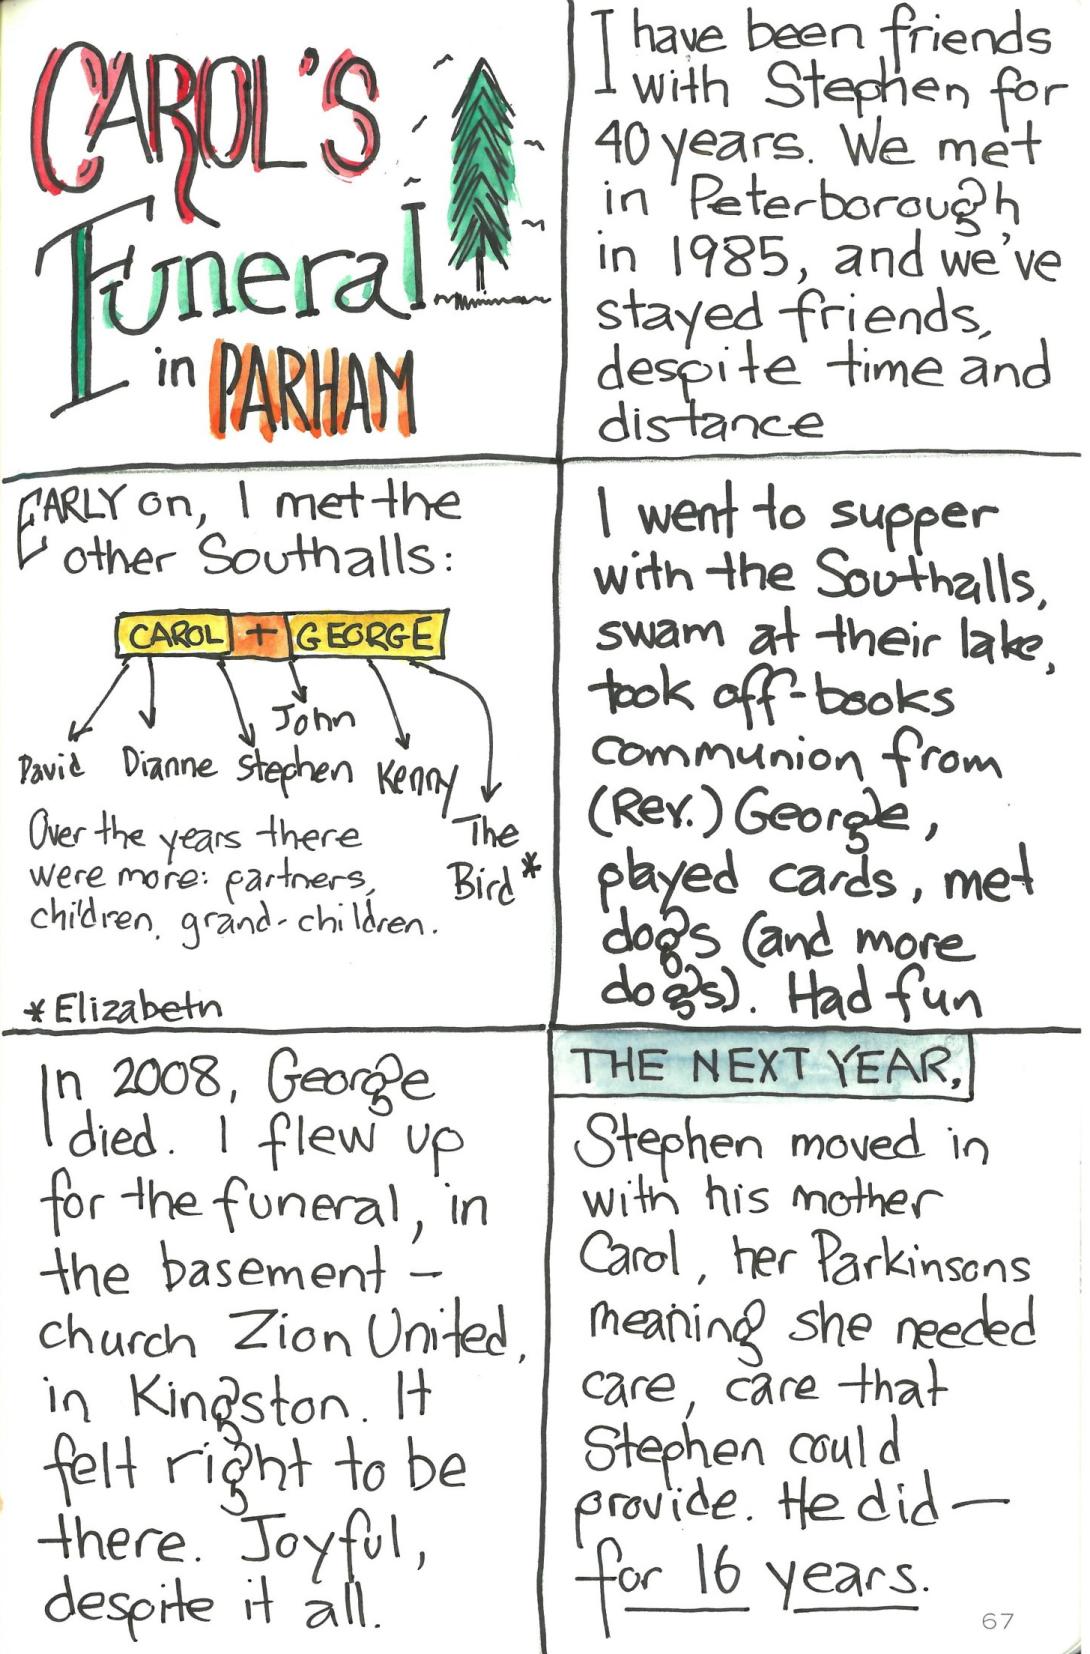 CAROL'S
Funeral
in PARHAM
I have been friends
with Stephen for
40 years. We met
in Peterborough
in 1985, and we've
stayed friends,
despite time and
distance
EARLY on, I met the
other Southalls:
CAROL + GEORGE
John
David Dianne Stephen Kenny
The
Bird*
Over the years there
were more: partners,
children, grand-children.
*Elizabeth
I went to supper
with the Southalls,
swam at their lake,
took off-books
communion from
(Rev.) George,
played cards, met
dogs (and more
dogs). Had fun
In 2008, George
died. I flew up
for the funeral, in
the basement –
church Zion United,
in Kingston. It
felt right to be
there. Joyful,
despite it all.
THE NEXT YEAR,
Stephen moved in
with his mother
Carol, her Parkinsons
meaning she needed
care, care that
Stephen could
provide. He did –
for 16 years.
67